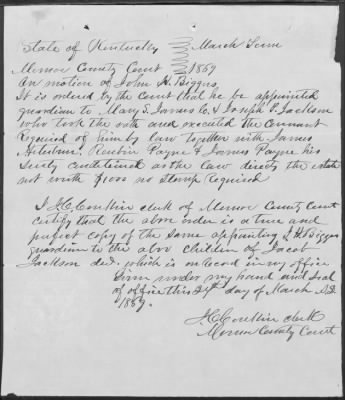 State of Kentucky March Term
Monroe County Court 1869
On motion of John H. Biggers
It is ordered by the court that he be appointed
guardian to Mary S. James C. & Joseph P. Jackson
who took the oath and executed the Covenant
Required of him by law together with James
Reubin Payne & James Payne his
Surety conditioned as the Law directs the estate
not worth $1000 no stamp Required
I J. C. Conklin clerk of Monroe County Court
certify that the above order is a true and
perfect copy of the same appointing J. H. Biggers
guardian to the abov children of Jacob
Jackson decd. which is on record in my office
Given under my hand and Seal
of office this 24th day of March A.D.
1869.
J. C. Conklin clerk
Monroe County Court